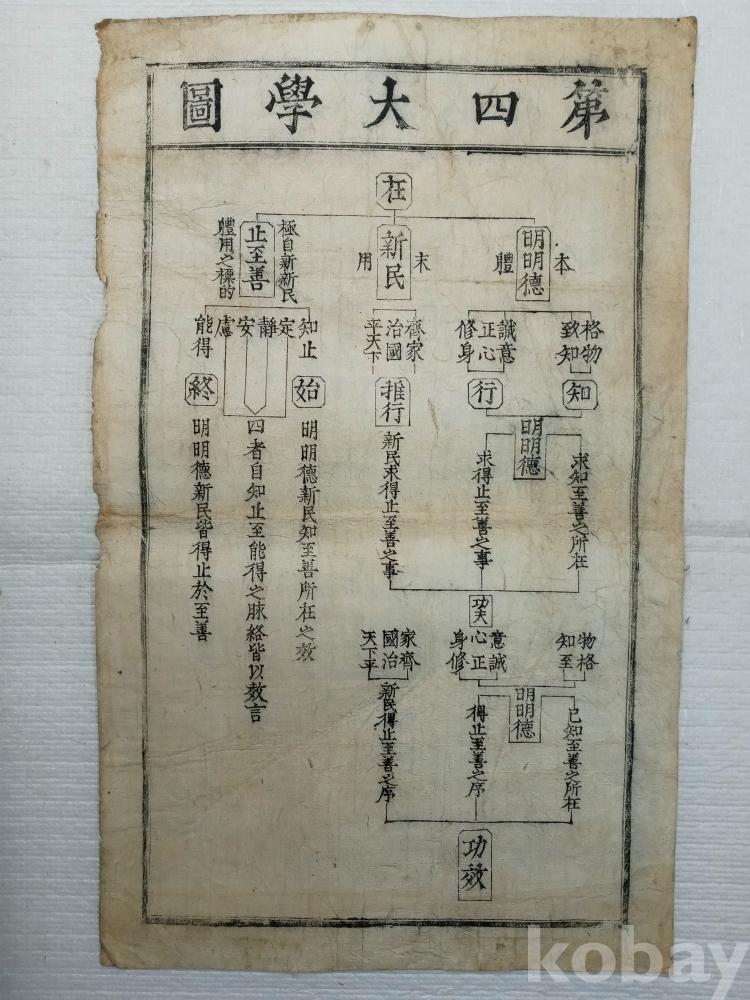 第四大學圖
在
明明德
本
體
新民
末
用
止至善
極自新新民
體用之標的
格物
致知
誠意
正心
修身
齊家
治國
平天下
知止
定
靜
安
慮
能得
知
行
推行
始
終
明明德
求知至善之所在
求得止至善之事
新民求得止至善之事
明明德新民知至善所在之效
四者自知止至能得之脉絡皆以效言
明明德新民皆得止於至善
功夫
物格
知至
意誠
心正
身修
家齊
國治
天下平
明明德
已知至善之所在
得止至善之序
新民得止至善之序
功效
kobay